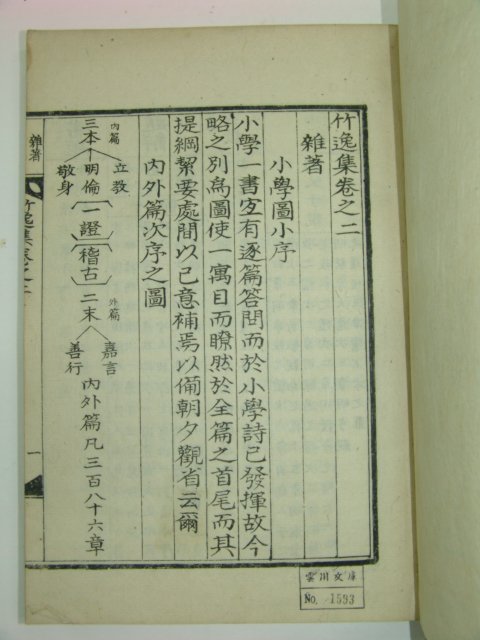 竹逸集卷之二
雜著
小學圖小序
小學一書宲有逐篇答問而於小學詩已發揮故今
略之別爲圖使一寓目而瞭然於全篇之首尾而其
提綱絜要處間以己意補焉以備朝夕觀省云爾
內外篇次序之圖
內篇
三本
立敎
明倫
敬身
一證
稽古
外篇
二末
嘉言
善行
內外篇凡三百八十六章
雜著
竹逸集卷之二
一
雲川文庫
No. 1593